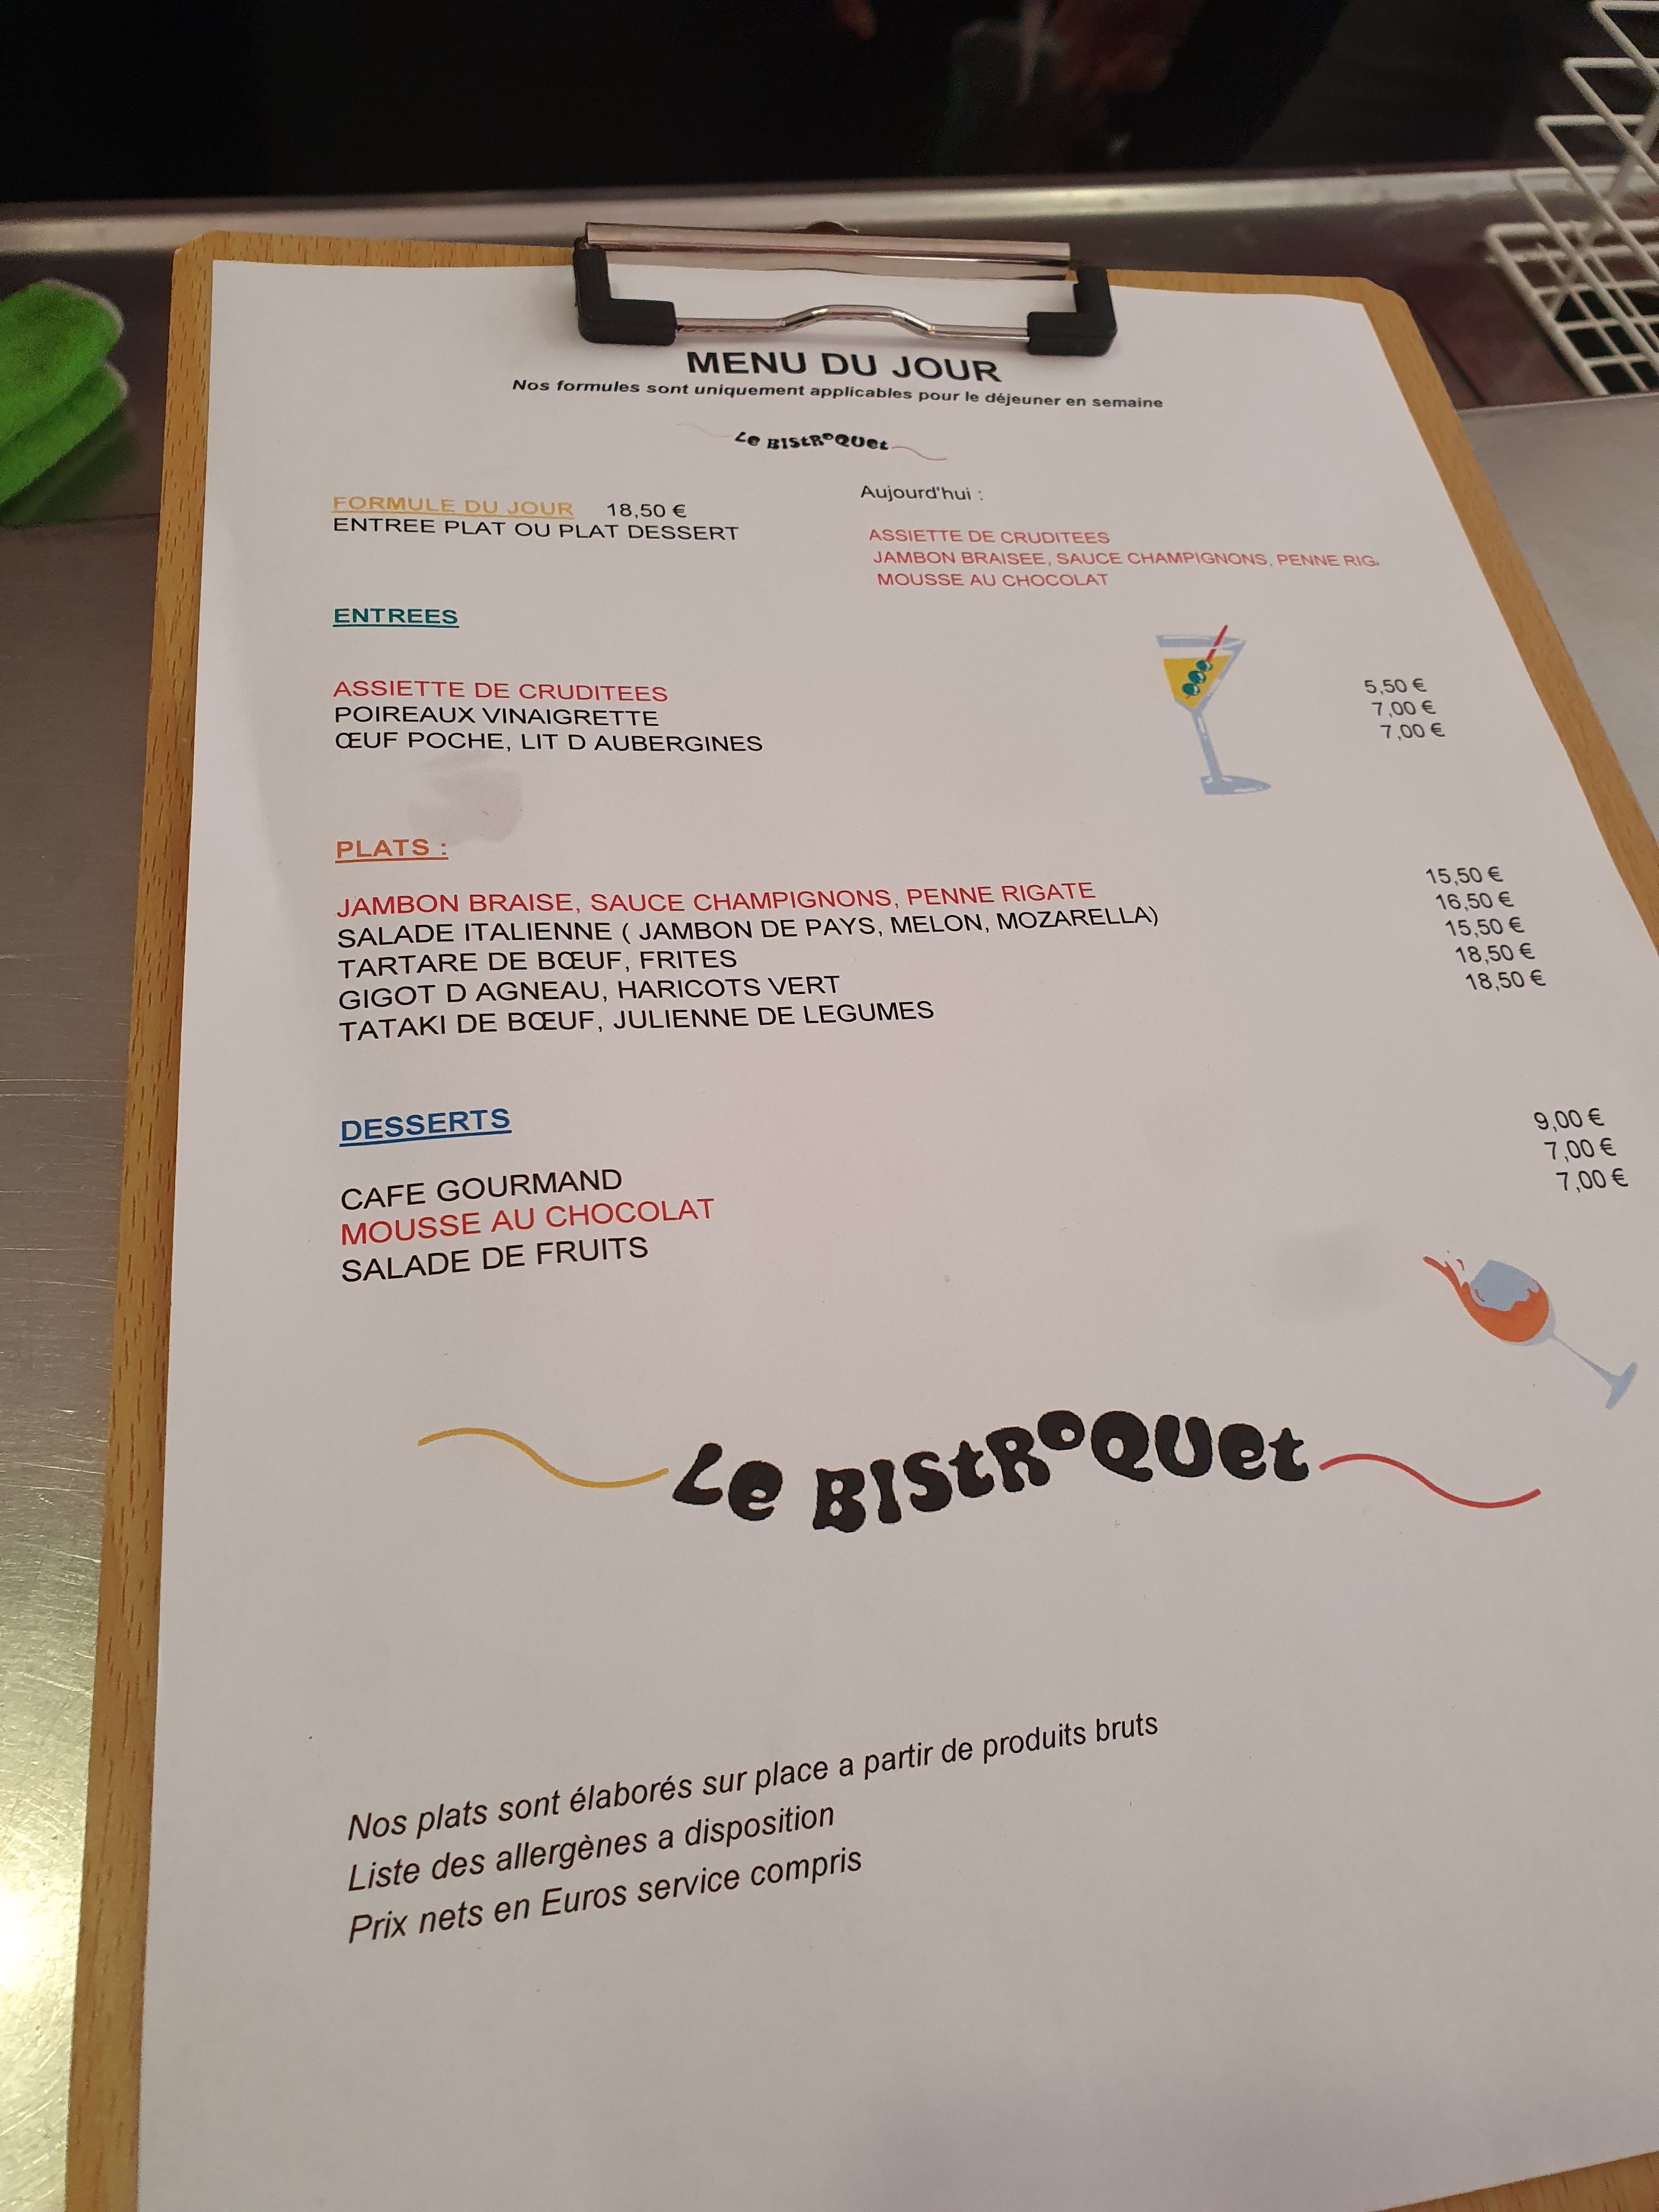 MENU DU JOUR
Nos formules sont uniquement applicables pour le déjeuner en semaine
Le BIStRoQUet
FORMULE DU JOUR 18,50 €
ENTREE PLAT OU PLAT DESSERT
Aujourd'hui :
ASSIETTE DE CRUDITEES
JAMBON BRAISEE, SAUCE CHAMPIGNONS, PENNE RIG.
MOUSSE AU CHOCOLAT
ENTREES
ASSIETTE DE CRUDITEES 5,50 €
POIREAUX VINAIGRETTE 7,00 €
ŒUF POCHE, LIT D AUBERGINES 7,00 €
PLATS :
JAMBON BRAISE, SAUCE CHAMPIGNONS, PENNE RIGATE 15,50 €
SALADE ITALIENNE ( JAMBON DE PAYS, MELON, MOZARELLA) 16,50 €
TARTARE DE BŒUF, FRITES 15,50 €
GIGOT D AGNEAU, HARICOTS VERT 18,50 €
TATAKI DE BŒUF, JULIENNE DE LEGUMES 18,50 €
DESSERTS
CAFE GOURMAND 9,00 €
MOUSSE AU CHOCOLAT 7,00 €
SALADE DE FRUITS 7,00 €
Le BIStRoQUet
Nos plats sont élaborés sur place a partir de produits bruts
Liste des allergènes a disposition
Prix nets en Euros service compris